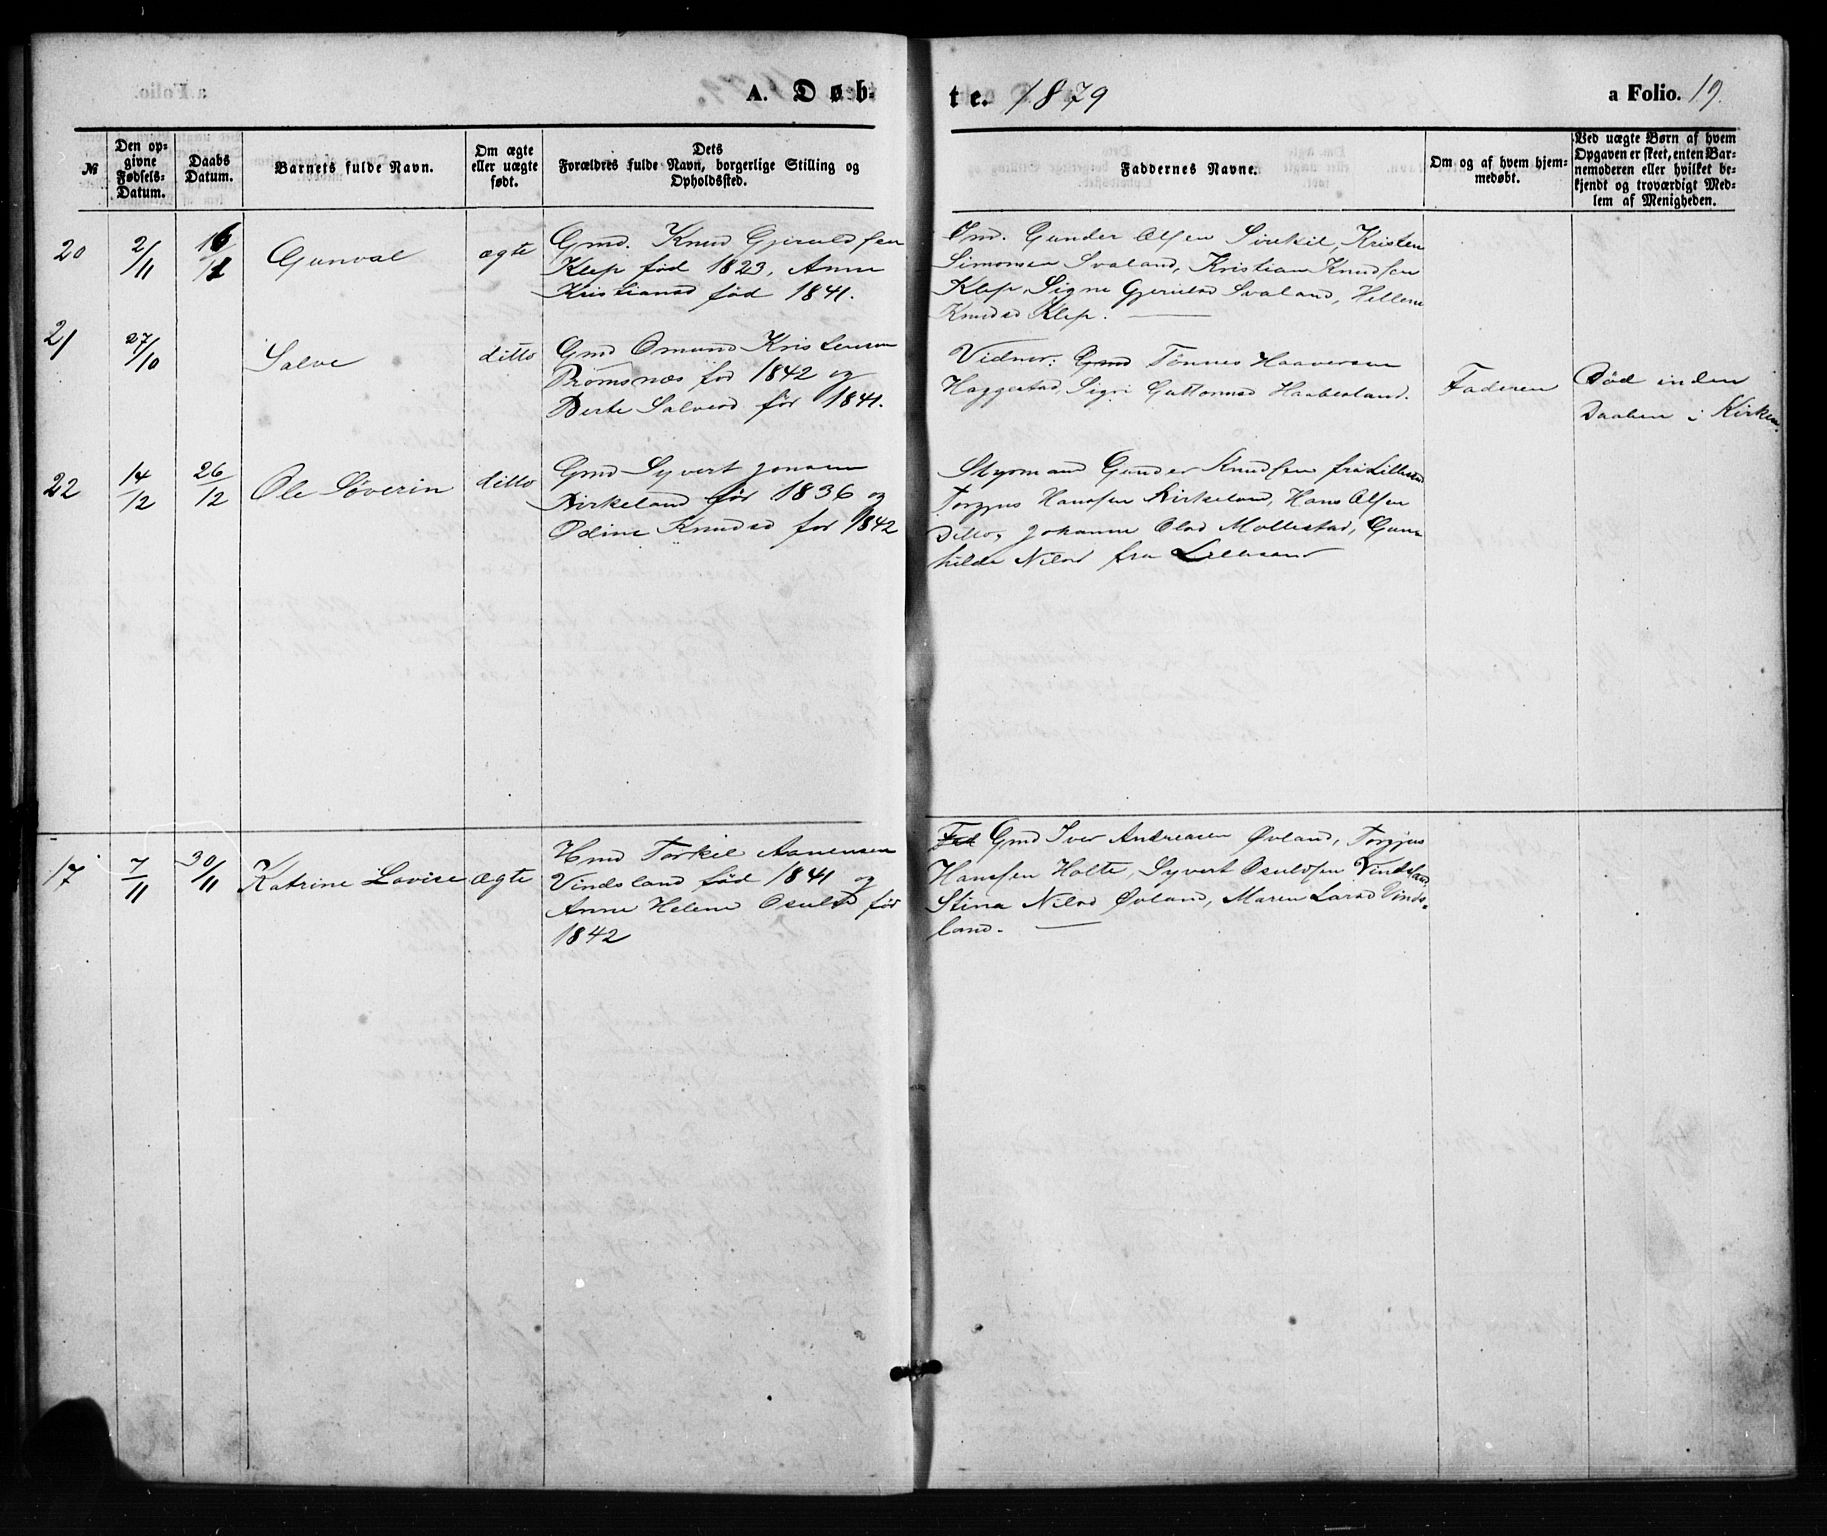 A. Døb-
te. 1879
a Folio. 19.
№
Den op-
givne
Fødsels-
Datum.
Daabs
Datum.
Barnets fulde Navn.
Om ægte
eller uægte
født.
Dets
Forældres fulde Navn, borgerlige Stilling og
Opholdssted.
Faddernes Navne.
Om og af hvem hjem-
medøbt.
Ved uægte Børn af hvem
Opgaven er skeet, enten Bar-
nemoderen eller hvilket be-
kjendt og troværdigt Med-
lem af Menigheden.
20
2/11
16/11
Gunval
ægte
Gmd. Knud Gjeruldsen
Klep født 1823, Anne
Kristiansd født 1841.
Gmd. Gunder Olsen Kristen
Simonsen Svaland, Kristian Knudsen
Klep, Signe Gjerulsd Svaland, Hellene
Knudsd Klep.
21
27/10
Salve
ditto
Gmd Omund Kristensen
Bromsnæs fød 1842 og
Berte Salvesd før 1841.
Vidner: Gmd Tønnes Haaversen
Haggestad, Sigri Guttormsd Haabesland.
Faderen
Død inden
Daaben i Kirken.
22
14/12
26/12
Ole Søverin
ditto
Gmd Syvert Jonsen
Birkeland før 1836 og
Odine Knudsd før 1842
Styrmand Gunder Knudsen fra Lillesand
Torgjus Hansen Birkeland, Hans Olsen
Ditto, Johanne Olsd Mollestad, Gun-
hilde Nilsd fra Lillesand
17
7/11
30/11
Katrine Lovise
ægte
Hmd Torkil Aanensen
Vindsland født 1841 og
Anne Helene Osulsd før
1842
Gmd Iver Andreasen Øvland, Torgjus
Hansen Holte, Syvert Osuldsen Vindsland
Stina Nilsd Øvland, Maren Larsd Vinds-
land.